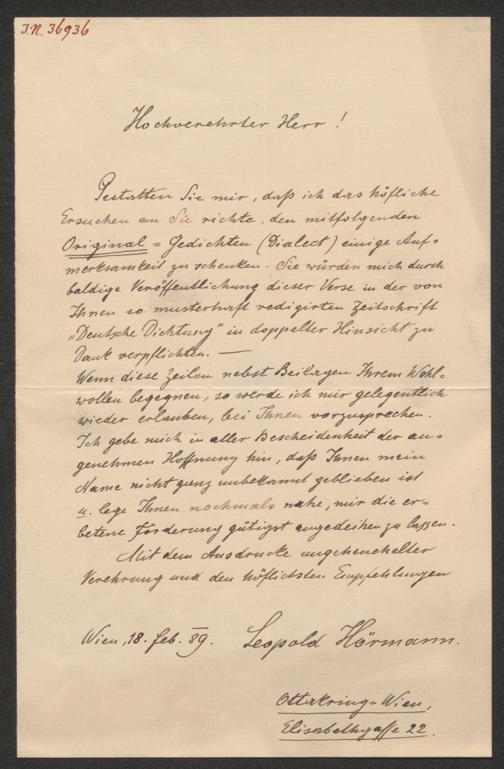 I.N. 36936
Hochverehrter Herr!
Gestatten Sie mir, daß ich das höfliche
Ersuchen an Sie richte, den mitfolgenden
Original = Gedichten (Dialect) einige Auf=
merksamkeit zu schenken. Sie würden mich durch
baldige Veröffentlichung dieser Verse in der von
Ihnen so musterhaft redigirten Zeitschrift
„Deutsche Dichtung" in doppelter Hinsicht zu
Dank verpflichten. —
Wenn diese Zeilen nebst Beilagen Ihrem Wohl=
wollen begegnen, so werde ich mir gelegentlich
wieder erlauben, bei Ihnen vorzusprechen.
Ich gebe mich in aller Bescheidenheit der an=
genehmen Hoffnung hin, daß Ihnen mein
Name nicht ganz unbekannt geblieben ist
u. lege Ihnen nochmals nahe, mir die er=
betene Förderung gütigst angedeihen zu lassen.
Mit dem Ausdrucke ungeheuchelter
Verehrung und den höflichsten Empfehlungen
Wien, 18. Feb. 89. Leopold Hörmann.
Ottakring=Wien,
Elisabethgasse 22.